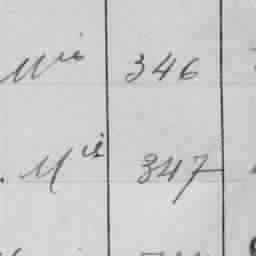 Mie 346
. Mie 347